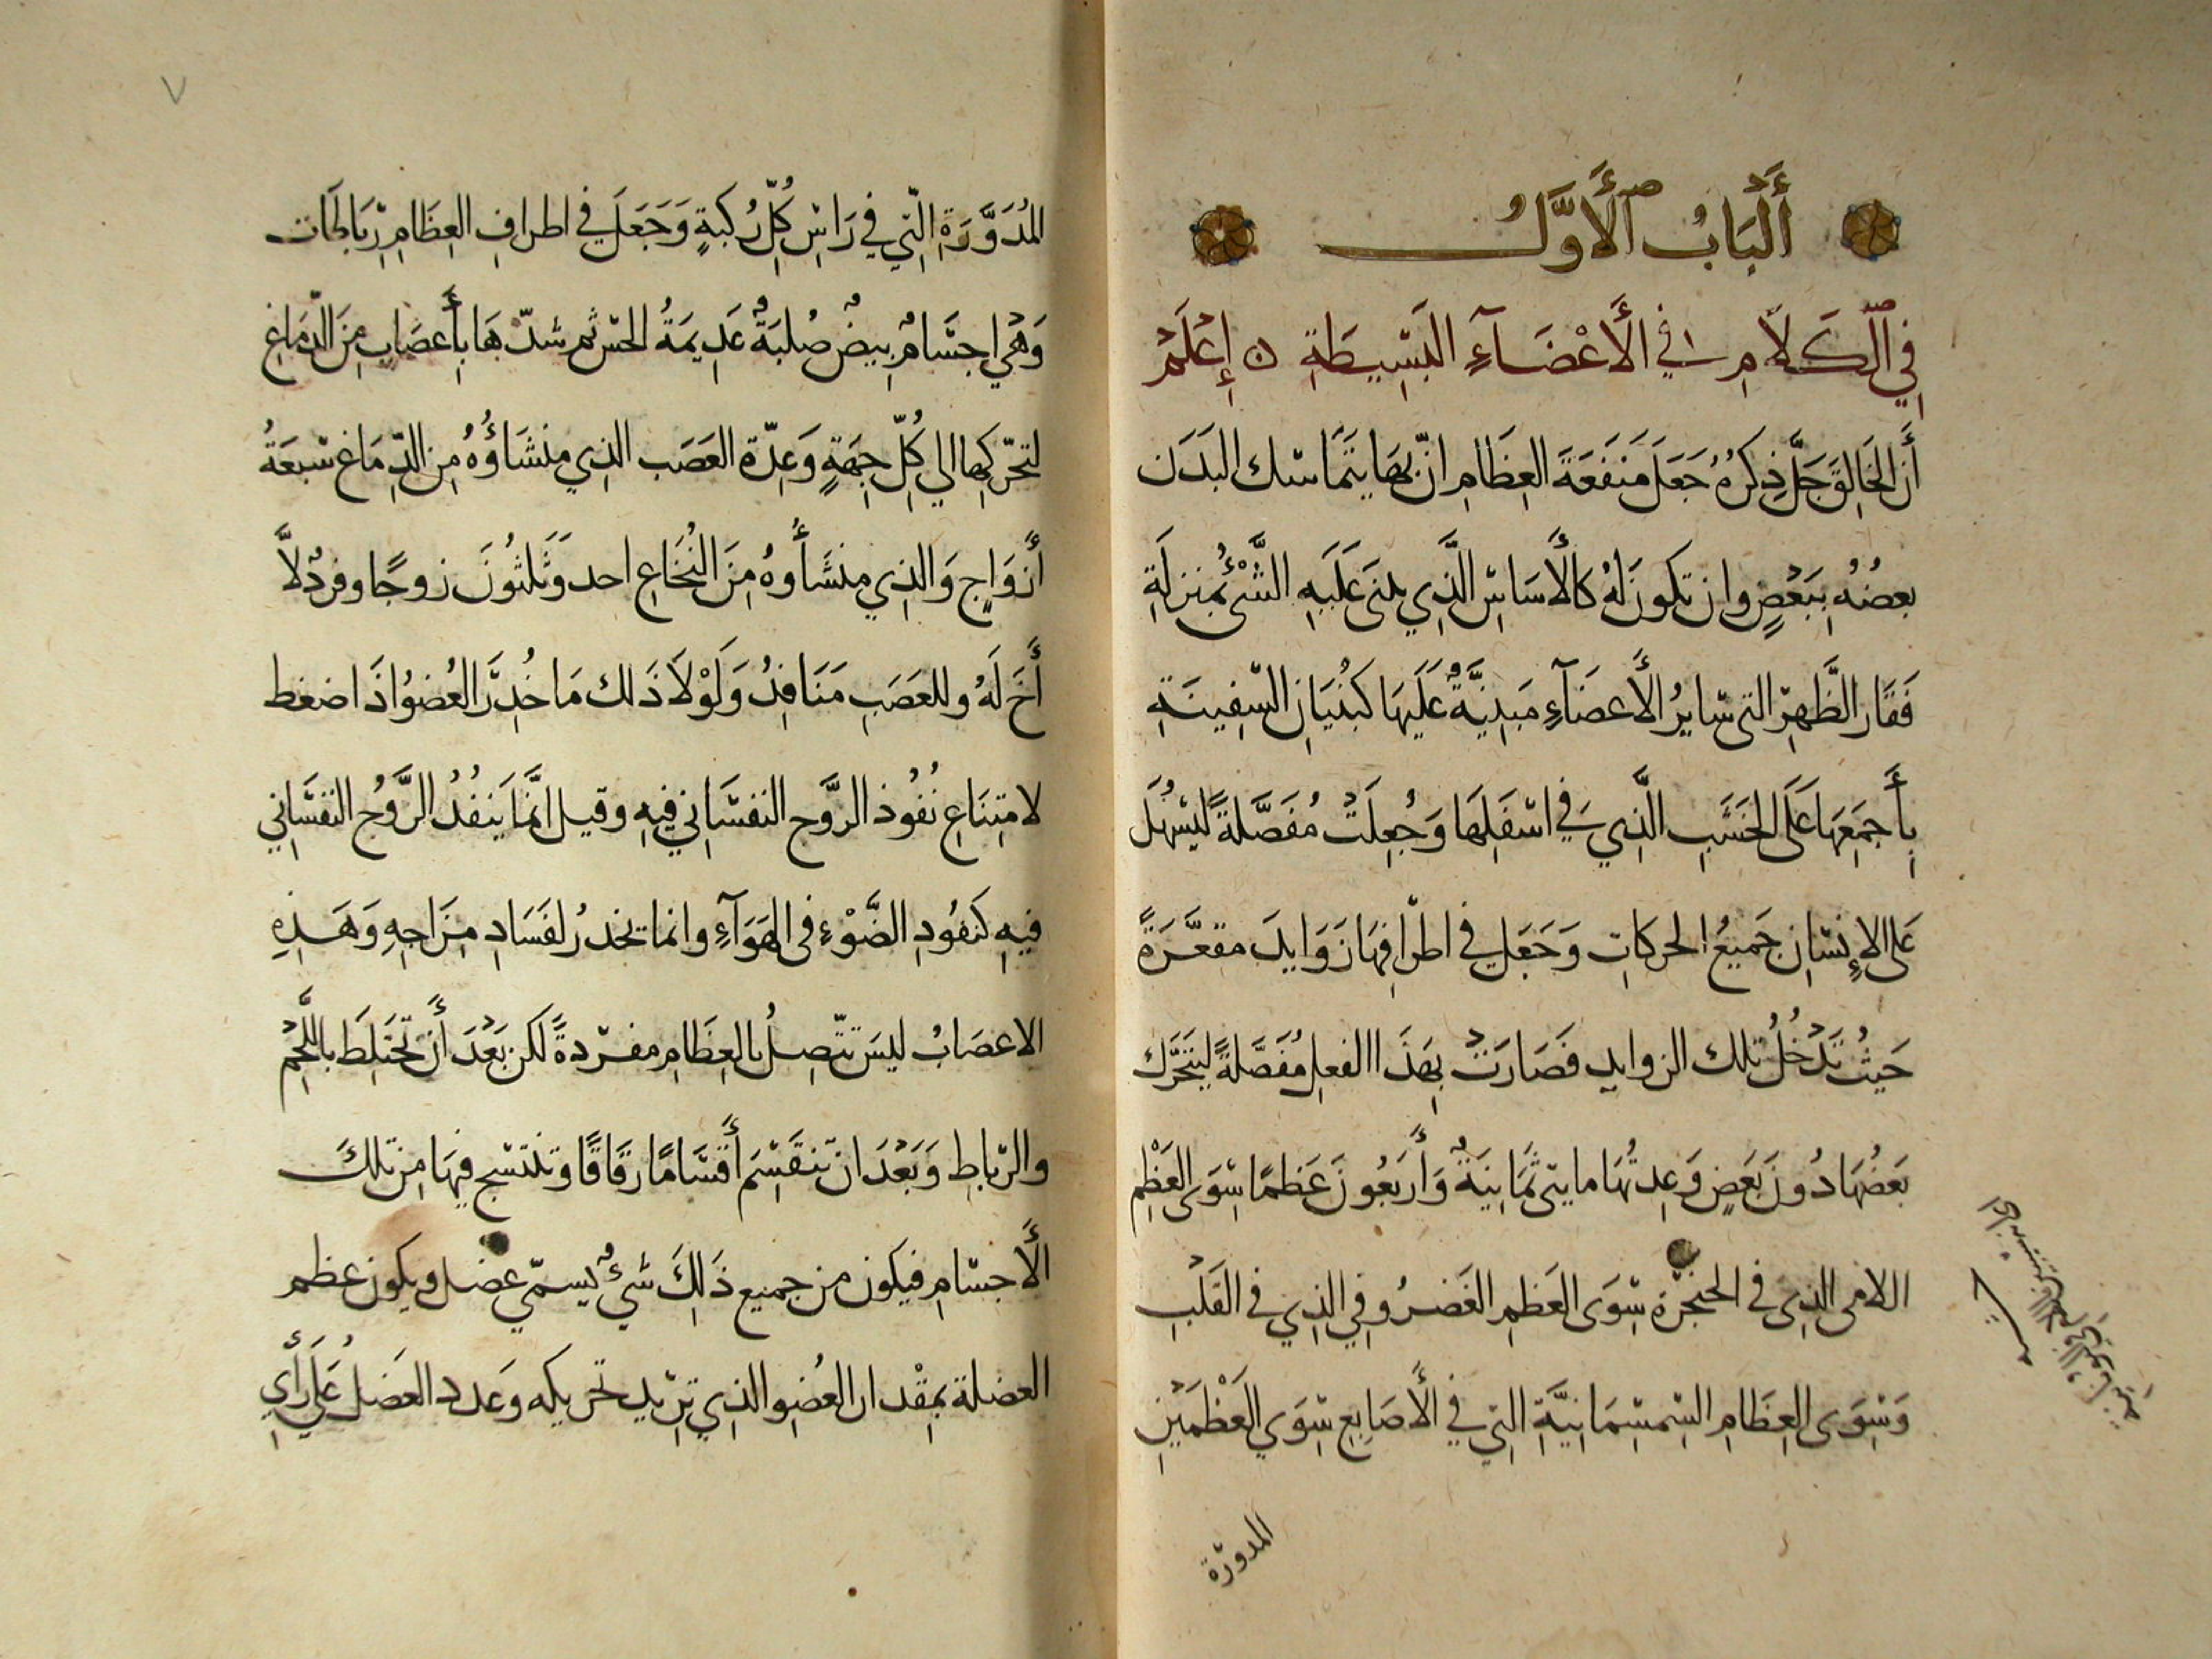 أَلْبَابُ ٱلْأَوَّلُ
فِي ٱلْكَلَامِ فِي الْأَعْضَآءِ البَسِيطَةِ ۞ إِعْلَمْ
أَنَّ الخَالِقَ جَلَّ ذِكرُهُ جَعَلَ مَنفَعَةَ العِظَامِ انّ بهَا يَتَمَاسَك البَدَن
بعضُهُ بِبَعْضٍ وان تكونَ لهُ كالأَسَاسِ الَّذِي يبنَى عَلَيهِ الشَّىْءُ بمنزلَةِ
فَقَار الظَّهرِ التى سَايرُ الأَعضَآءِ مَبنِيَّةٌ عَلَيهَا كبُنيَانِ السّفِينَةِ
بِأَجمَعِهَا عَلَى الخَشَبِ الَّذِي فِي اسفَلِهَا وَجُعِلَتْ مُفَصَّلةً ليَسْهُلَ
عَلى الإِنسَانِ جَميعُ الحركَاتِ وَجَعَل فِي اطرَافِهَا زَوَايدَ مقعَّرَةً
حَيثُ تَدْخُلُ تلك الزوايد فَصَارَتْ بِهَذَا الفعلِ مُفَصَّلةً ليَتَحَرَّك
بَعضُهَا دُونَ بَعَضٍ وَعِدتُهَا مايتى ثمَانِيَةٌ وَأَربَعُونَ عَظمًا سِوَى العَظْمِ
اللامى الذِى فى الحنجرَة سِوَى العَظمِ الغَضرُوفي الذِي فى القَلْبِ
وَسِوَى العِظَامِ السِّمسِمَانِيَّةِ التِي فِي الأَصَابِع سِوَي العَظْمَيْنِ
المدورة
٧
المُدَوَّرَةِ الَّتِي فِي رَاسِ كُلِّ رُكبةٍ وَجَعَلَ فِي اطرافِ العِظَامِ رِبَاطَات
وَهْيَ اجسَامٌ بِيضٌ صُلبَةٌ عَدِيمَةُ الحسّ ثم شدّ بهَا بأَعصَابٍ مِنَ الدّمَاغِ
لتحَرّكِهَا الي كُلِّ جِهَةٍ وَعِدّة العَصَب الذِي مِنشَاؤُهُ مِن الدِّمَاغ سَبعَةُ
أَزوَاجٍ وَالذِي مِنشَأُوهُ مِنَ النُخَاعِ احد وَثَلثُونَ زوجًا وفردٌ لاَ
أَخَ لَهُ وللعَصَبِ مَنَافِذُ وَلَوْلاَ ذَلك مَا خُدِّرَ العُضوُ اذَا ضغط
لامتِنَاعِ نُفُوذ الرَّوح النفسَانِي فيهِ وقيل انَّمَا يَنفُذُ الرَّوُح النفسَانِي
فيهِ كنفُودِ الضَّوْءِ فى الهَوَآءِ وانما يخدرُ لفَسَادِ مِزَاجِهِ وَهَذِهِ
الاعصَابُ ليسَ تتّصِلُ بالعِظَامِ مفرَدةً لكن بَعْدَ أَن تَختَلِطَ باللَّحْمِ
والرّبَاطِ وَبَعْدَ ان تنقَسِمَ أَقسَامًا رقَاقًا وتنتسِج فيهَا مِن تلكَ
الأَجسَامِ فيكون من جميع ذَلِكَ شَيءٌ يسمّي عضل ويكون عظم
العضلة بمِقْدار العُضِو الذِي تريْد تحريكه وَعدد العضَلُ عَلَي رَأْيِ